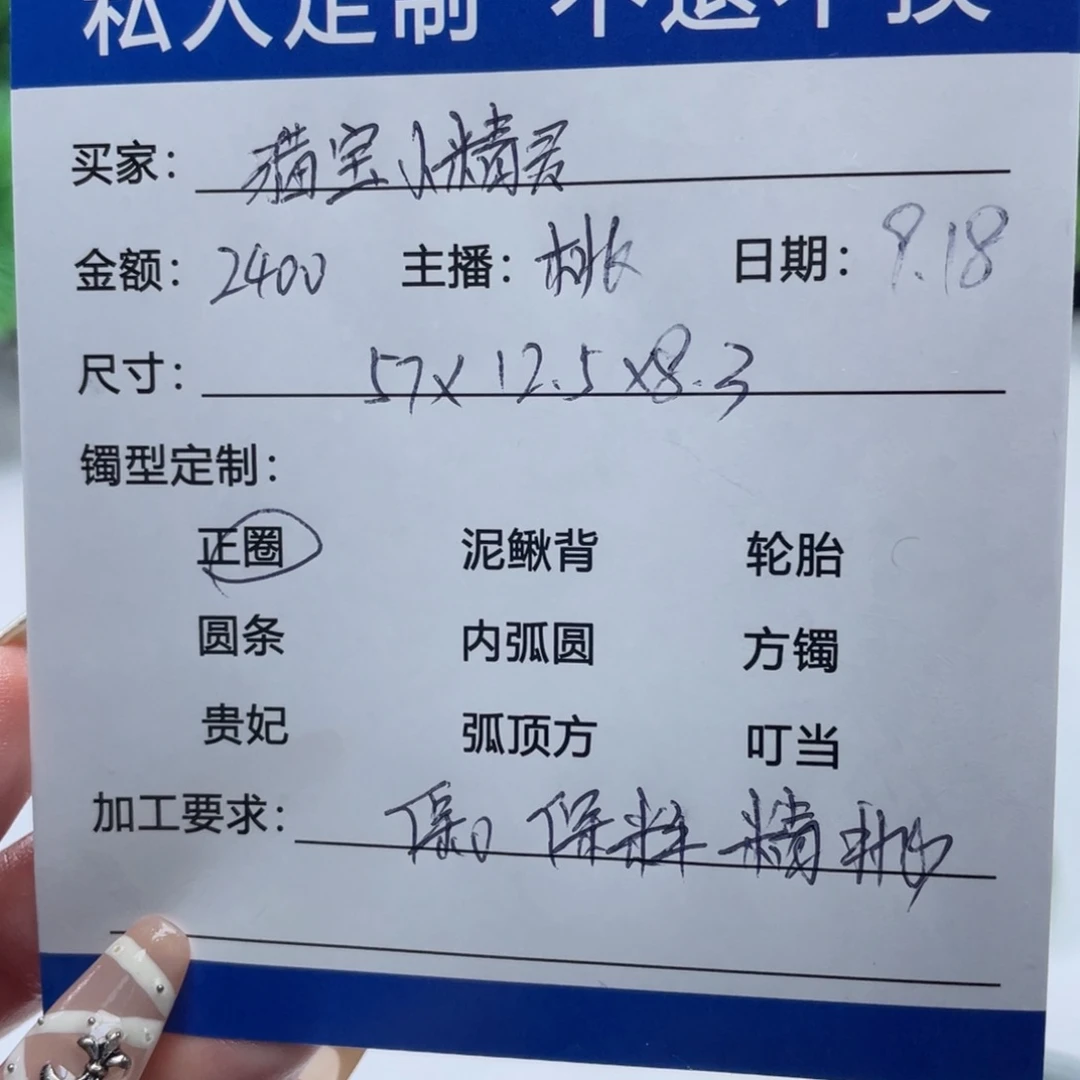 私人定制 不退不换
买家：猫宝小精灵
金额：2400 主播：桃 日期：9.18
尺寸：57X12.5X8.3
镯型定制：
正圈 泥鳅背 轮胎
圆条 内弧圆 方镯
贵妃 弧顶方 叮当
加工要求：保口 保料 精抛